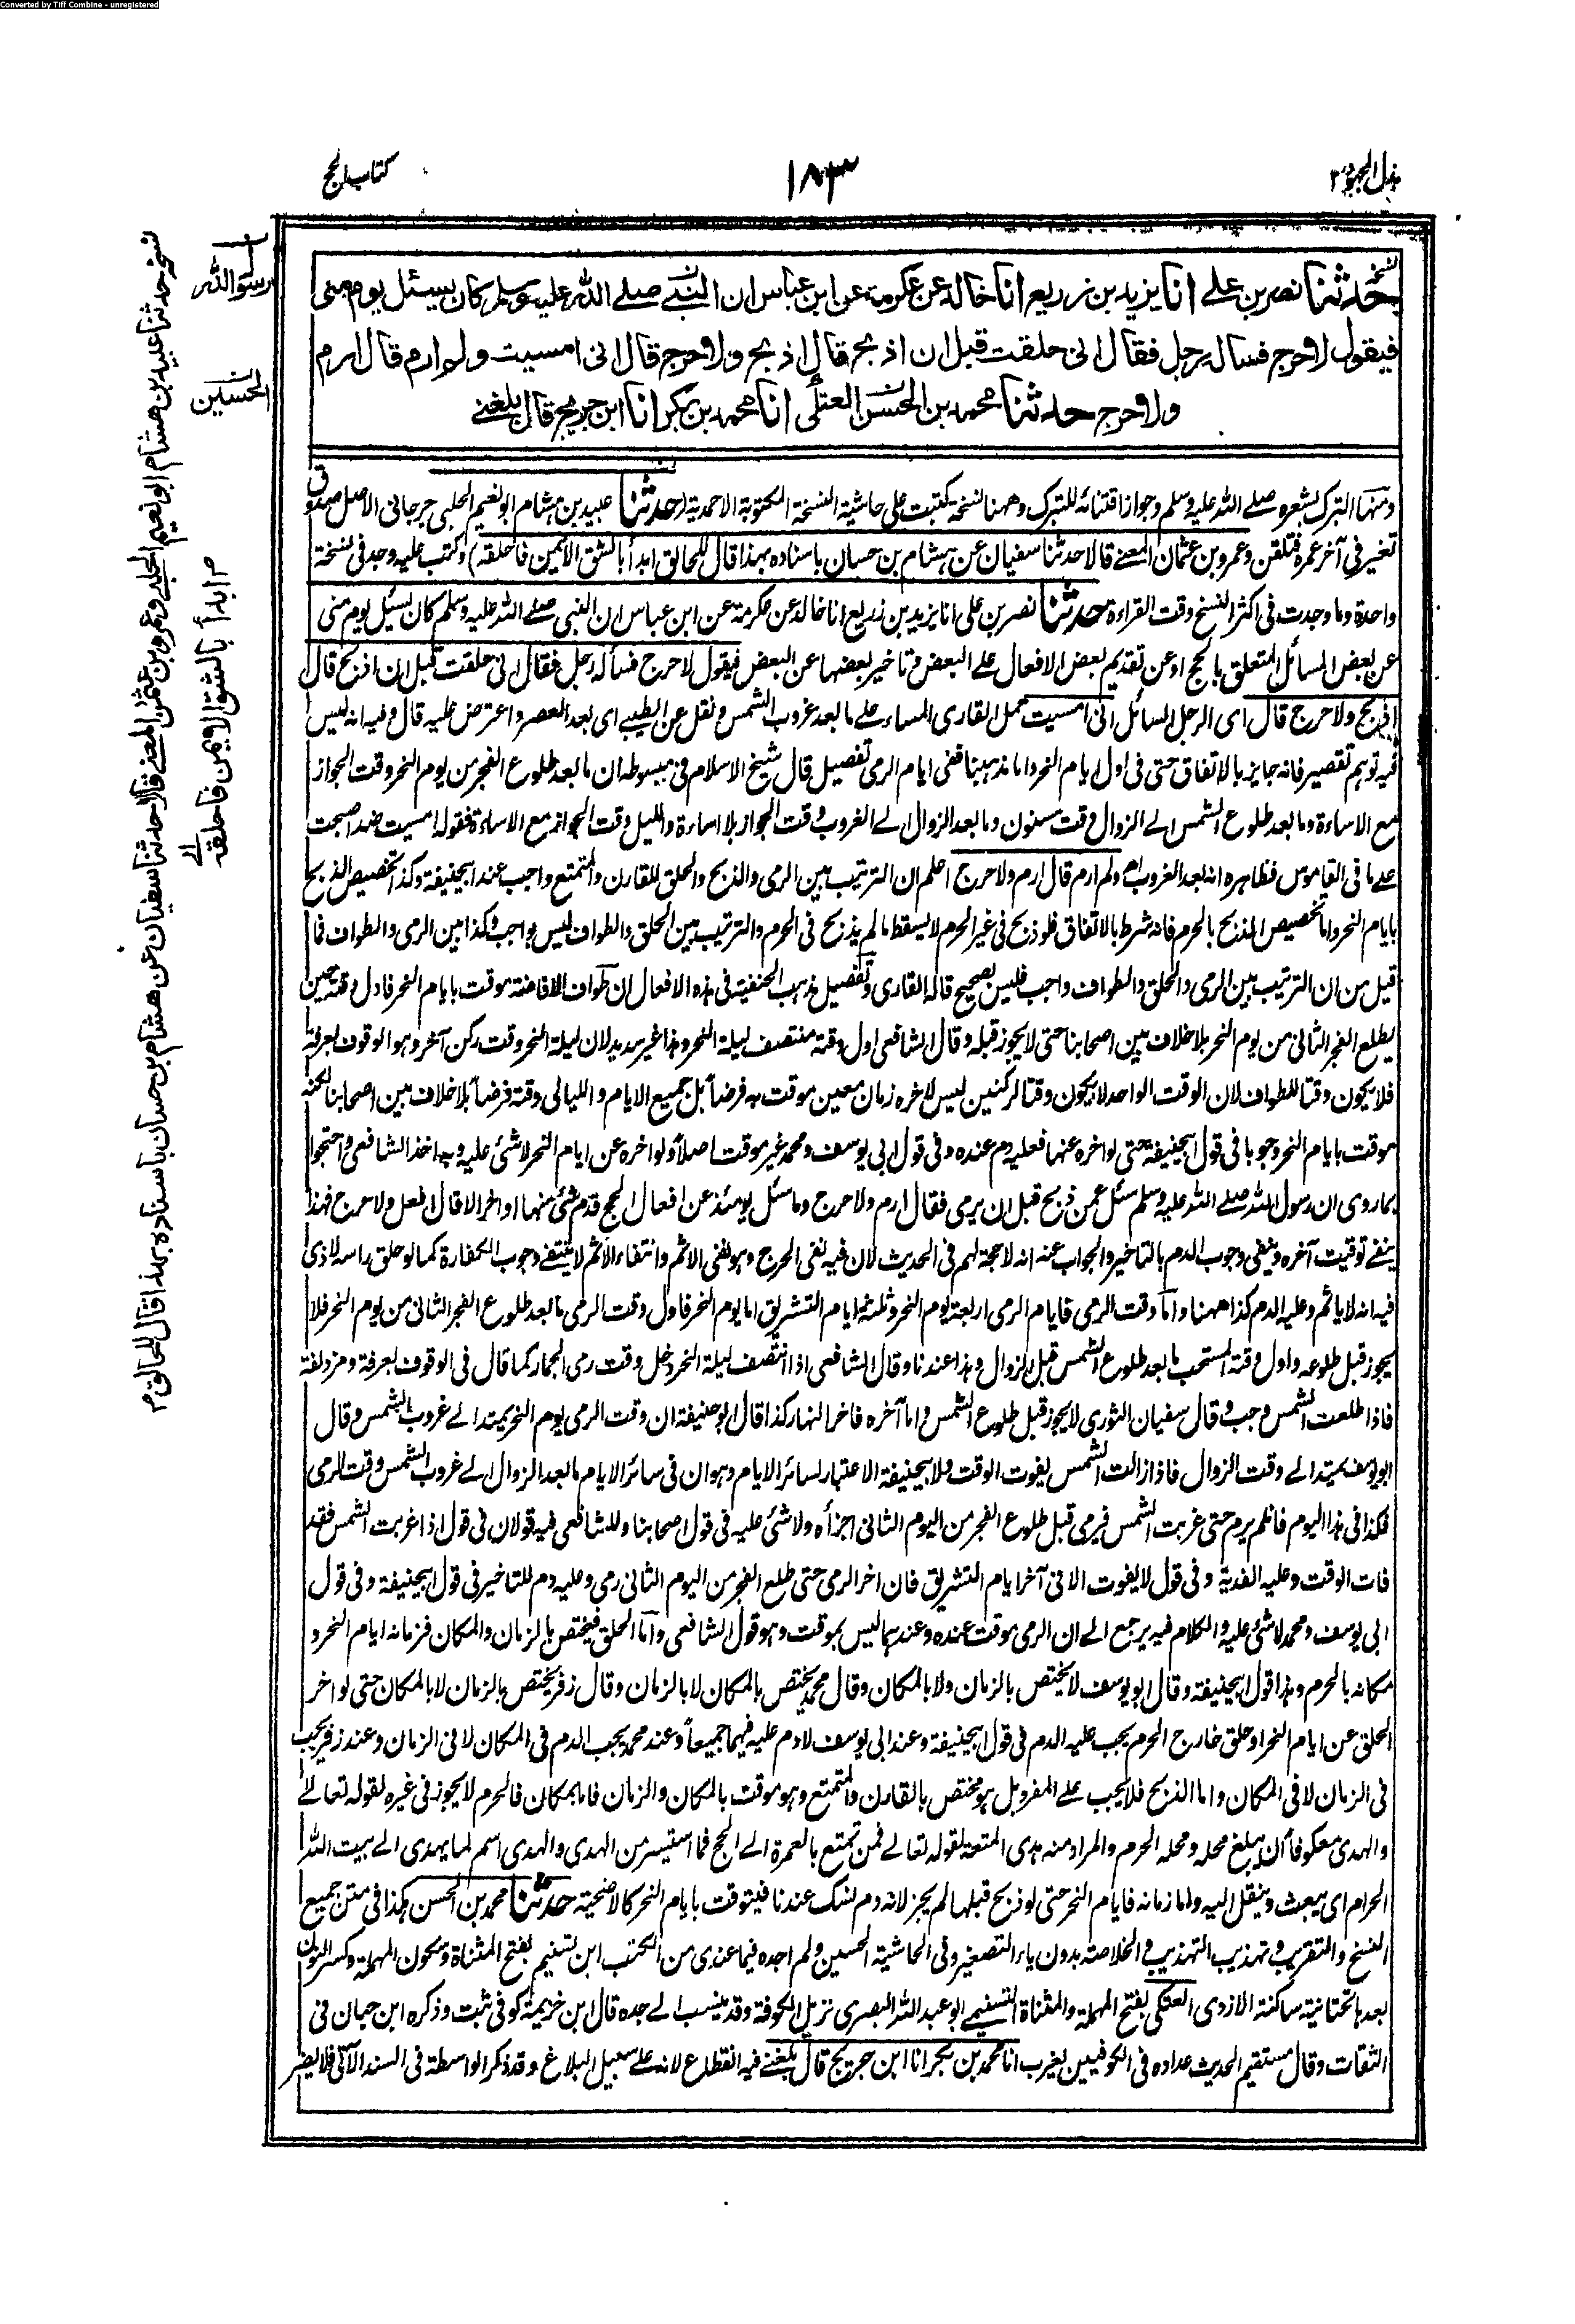 Converted by Tiff Combine - unregistered
بذل المجهود ٣
١٨٣
كتاب الحج
نسخة
حدثنا نصر بن علي انا يزيد بن زريع انا خالد عن عكرمة عن ابن عباس ان النبي صلے الله عليه وسلم كان يسئل يوم منى
فيقول لا حرج فساله رجل فقال انى حلقت قبل ان اذبح قال اذبح ولا حرج قال انى امسيت ولم ارم قال ارم
ولا حرج حدثنا محمد بن الحسن العتكي انا محمد بن بكر انا ابن جريج قال بلغني
رسول الله
الحسين
نسخة حدثنا عبيد بن هشام ابو نعيم الحلبي وعمرو بن عثمن المعنے قالا حدثنا سفيان عن هشام بن حسان باسناده بهذا قال للحالق م
م ابدأ بالشق الايمن فاحلقه
الے
ومنها التبرك بشعره صلے الله عليه وسلم وجواز اقتنائه للتبرك وههنا نسخة كتبت على حاشية النسخة المكتوبة الاحمدية (حدثنا عبيد بن هشام ابو نعيم الحلبي جرجانى الاصل صدوق
تغير فى آخر عمره فتلقن وعمرو بن عثمان المعنے قالا حدثنا سفيان عن هشام بن حسان باسناده بهذا قال للحالق ابدأ بالشق الايمن فاحلقه) وكتب عليه وجد فى نسخة
واحدة وما وجدت فى اكثر النسخ وقت القراءة حدثنا نصر بن على انا يزيد بن زريع انا خالد عن عكرمة عن ابن عباس ان النبى صلے الله عليه وسلم كان يسئل يوم منى
عن بعض المسائل المتعلق بالحج او عن تقديم بعض الافعال علے البعض وتاخير بعضها عن البعض فيقول لا حرج فسأله رجل فقال انى حلقت قبل ان اذبح قال
اذبح ولا حرج قال اى الرجل السائل انى امسيت حمل القارى المساء علے ما بعد غروب الشمس ونقل عن الطيبے اى بعد العصر واعترض عليه قال وفيه انه ليس
فيه توهم تقصير فانه جايز بالاتفاق حتى فى اول ايام النحر واما مذهبنا ففى ايام الرمى تفصيل قال شيخ الاسلام فى مبسوطه ان ما بعد طلوع الفجر من يوم النحر وقت الجواز
مع الاساءة وما بعد طلوع الشمس الے الزوال وقت مسنون وما بعد الزوال الے الغروب وقت الجواز بلا اساءة والليل وقت الجواز مع الاساءة فقوله امسيت ضد اصبحت
علے ما فى القاموس فظاهره انه بعد الغروب اه ولم ارم قال ارم ولا حرج اعلم ان الترتيب بين الرمى والذبح والحلق للقارن والمتمتع واجب عند ابيحنيفة وكذا تخصيص الذبح
بايام النحر واما تخصيص الذبح بالحرم فانه شرط بالاتفاق فلو ذبح فى غير الحرم لا يسقط ما لم يذبح فى الحرم والترتيب بين الحلق والطواف ليس بواجب وكذا بين الرمى والطواف فما
قيل من ان الترتيب بين الرمى والحلق والطواف واجب فليس بصحيح قاله القارى وتفصيل مذهب الحنفية فى هذه الافعال ان طواف الافاضة موقت بايام النحر فاول وقته حين
يطلع الفجر الثانى من يوم النحر بلا خلاف بين اصحابنا حتى لا يجوز قبله وقال الشافعى اول وقته منتصف ليلة النحر وهذا غير سديد لان ليلة النحر وقت ركن آخر وهو الوقوف بعرفة
فلا يكون وقتا للطواف لان الوقت الواحد لا يكون وقتا لركنين ليس لاخره زمان معين موقت به فرضاً بل جميع الايام والليالى وقته فرضاً بلا خلاف بين اصحابنا لكنه
موقت بايام النحر وجوبا فى قول ابيحنيفة حتى لو اخره عنها فعليه دم عنده وفى قول ابى يوسف ومحمد غير موقت اصلاً ولو اخره عن ايام النحر لا شئ عليه وبه اخذ الشافعى واحتجوا
بما روى ان رسول الله صلے الله عليه وسلم سئل عمن ذبح قبل ان يرمى فقال ارم ولا حرج وما سئل يومئذ عن افعال الحج قدم شئ منها او اخر الا قال افعل ولا حرج فهذا
ينفے توقيت آخره وينفى وجوب الدم بالتاخير والجواب عنه انه لا حجة لهم فى الحديث لان فيه نفى الحرج وهو نفى الاثم وانتفاء الاثم لا ينتفے وجوب الكفارة كما لو حلق راسه لاذى
فيه انه لا ياثم وعليه الدم كذا ههنا واما وقت الرمى فايام الرمى اربعة يوم النحر وثلثة ايام التشريق اما يوم النحر فاول وقت الرمى ما بعد طلوع الفجر الثانى من يوم النحر فلا
يجوز قبل طلوعه واول وقته المستحب ما بعد طلوع الشمس قبل الزوال وهذا عندنا وقال الشافعى اذا انتصف ليلة النحر دخل وقت رمى الجمار كما قال فى الوقوف بعرفة ومزدلفة
فاذا طلعت الشمس وجب وقال سفيان الثورى لا يجوز قبل طلوع الشمس واما آخره فاخر النهار كذا قال ابو حنيفة ان وقت الرمى يوم النحر يمتد الے غروب الشمس وقال
ابو يوسف يمتد الے وقت الزوال فاذا زالت الشمس يفوت الوقت ولابيحنيفة الاعتبار بسائر الايام وهو ان فى سائر الايام ما بعد الزوال الے غروب الشمس وقت الرمى
فكذا فى هذا اليوم فان لم يرم حتى غربت الشمس فيرمى قبل طلوع الفجر من اليوم الثانى اجزأه ولا شئ عليه فى قول اصحابنا وللشافعى فيه قولان فى قول اذا غربت الشمس فقد
فات الوقت وعليه الفدية وفى قول لا يفوت الا فى آخر ايام التشريق فان اخر الرمى حتى طلع الفجر من اليوم الثانى رمى وعليه دم للتاخير فى قول ابيحنيفة وفى قول
ابى يوسف ومحمد لا شئ عليه والكلام فيه يرجع الے ان الرمى موقت عنده وعندهما ليس بموقت وهو قول الشافعى واما الحلق فيختص بالزمان والمكان فزمانه ايام النحر و
مكانه بالحرم وهذا قول ابيحنيفة وقال ابو يوسف لا يختص بالزمان ولا بالمكان وقال محمد يختص بالمكان لا بالزمان وقال زفر يختص بالزمان لا بالمكان حتى لو اخر
الحلق عن ايام النحر او حلق خارج الحرم يجب عليه الدم فى قول ابيحنيفة وعند ابى يوسف لا دم عليه فيهما جميعاً وعند محمد يجب الدم فى المكان لا فى الزمان وعند زفر يجب
فى الزمان لا فى المكان واما الذبح فلا يجب علے المفرد بل هو مختص بالقارن والمتمتع وهو موقت بالمكان والزمان فاما بمكان فالحرم لا يجوز فى غيره لقوله تعالے
والهدى معكوفا أن يبلغ محله ومحله الحرم والمراد منه هدى المتعة لقوله تعالے فمن تمتع بالعمرة الے الحج فما استيسر من الهدى والهدى اسم لما يهدى الے بيت الله
الحرام اى يبعث وينقل اليه واما زمانه فايام النحر حتى لو ذبح قبلها لم يجز لانه دم نسك عندنا فيتوقت بايام النحر كالاضحية حدثنا محمد بن الحسن هكذا فى متن جميع
النسخ والتقريب وتهذيب التهذيب والخلاصة بدون ياء التصغير وفى الحاشية الحسين ولم اجده فيما عندى من الكتب ابن تسنيم بفتح المثناة وسكون المهملة وكسر النون
بعدها تحتانية ساكنة الازدى العتكي بفتح المهملة والمثناة التسنيمے ابو عبد الله البصرى نزيل الكوفة وقد ينسب الے جده قال ابن خزيمة كوفى ثبت وذكره ابن حبان فى
الثقات وقال مستقيم الحديث عداده فى الكوفيين يغرب انا محمد بن بكر انا ابن جريج قال بلغنے فيه انقطاع لانه علے سبيل البلاغ وقد ذكر الواسطة فى السند الآتى فلا يضر